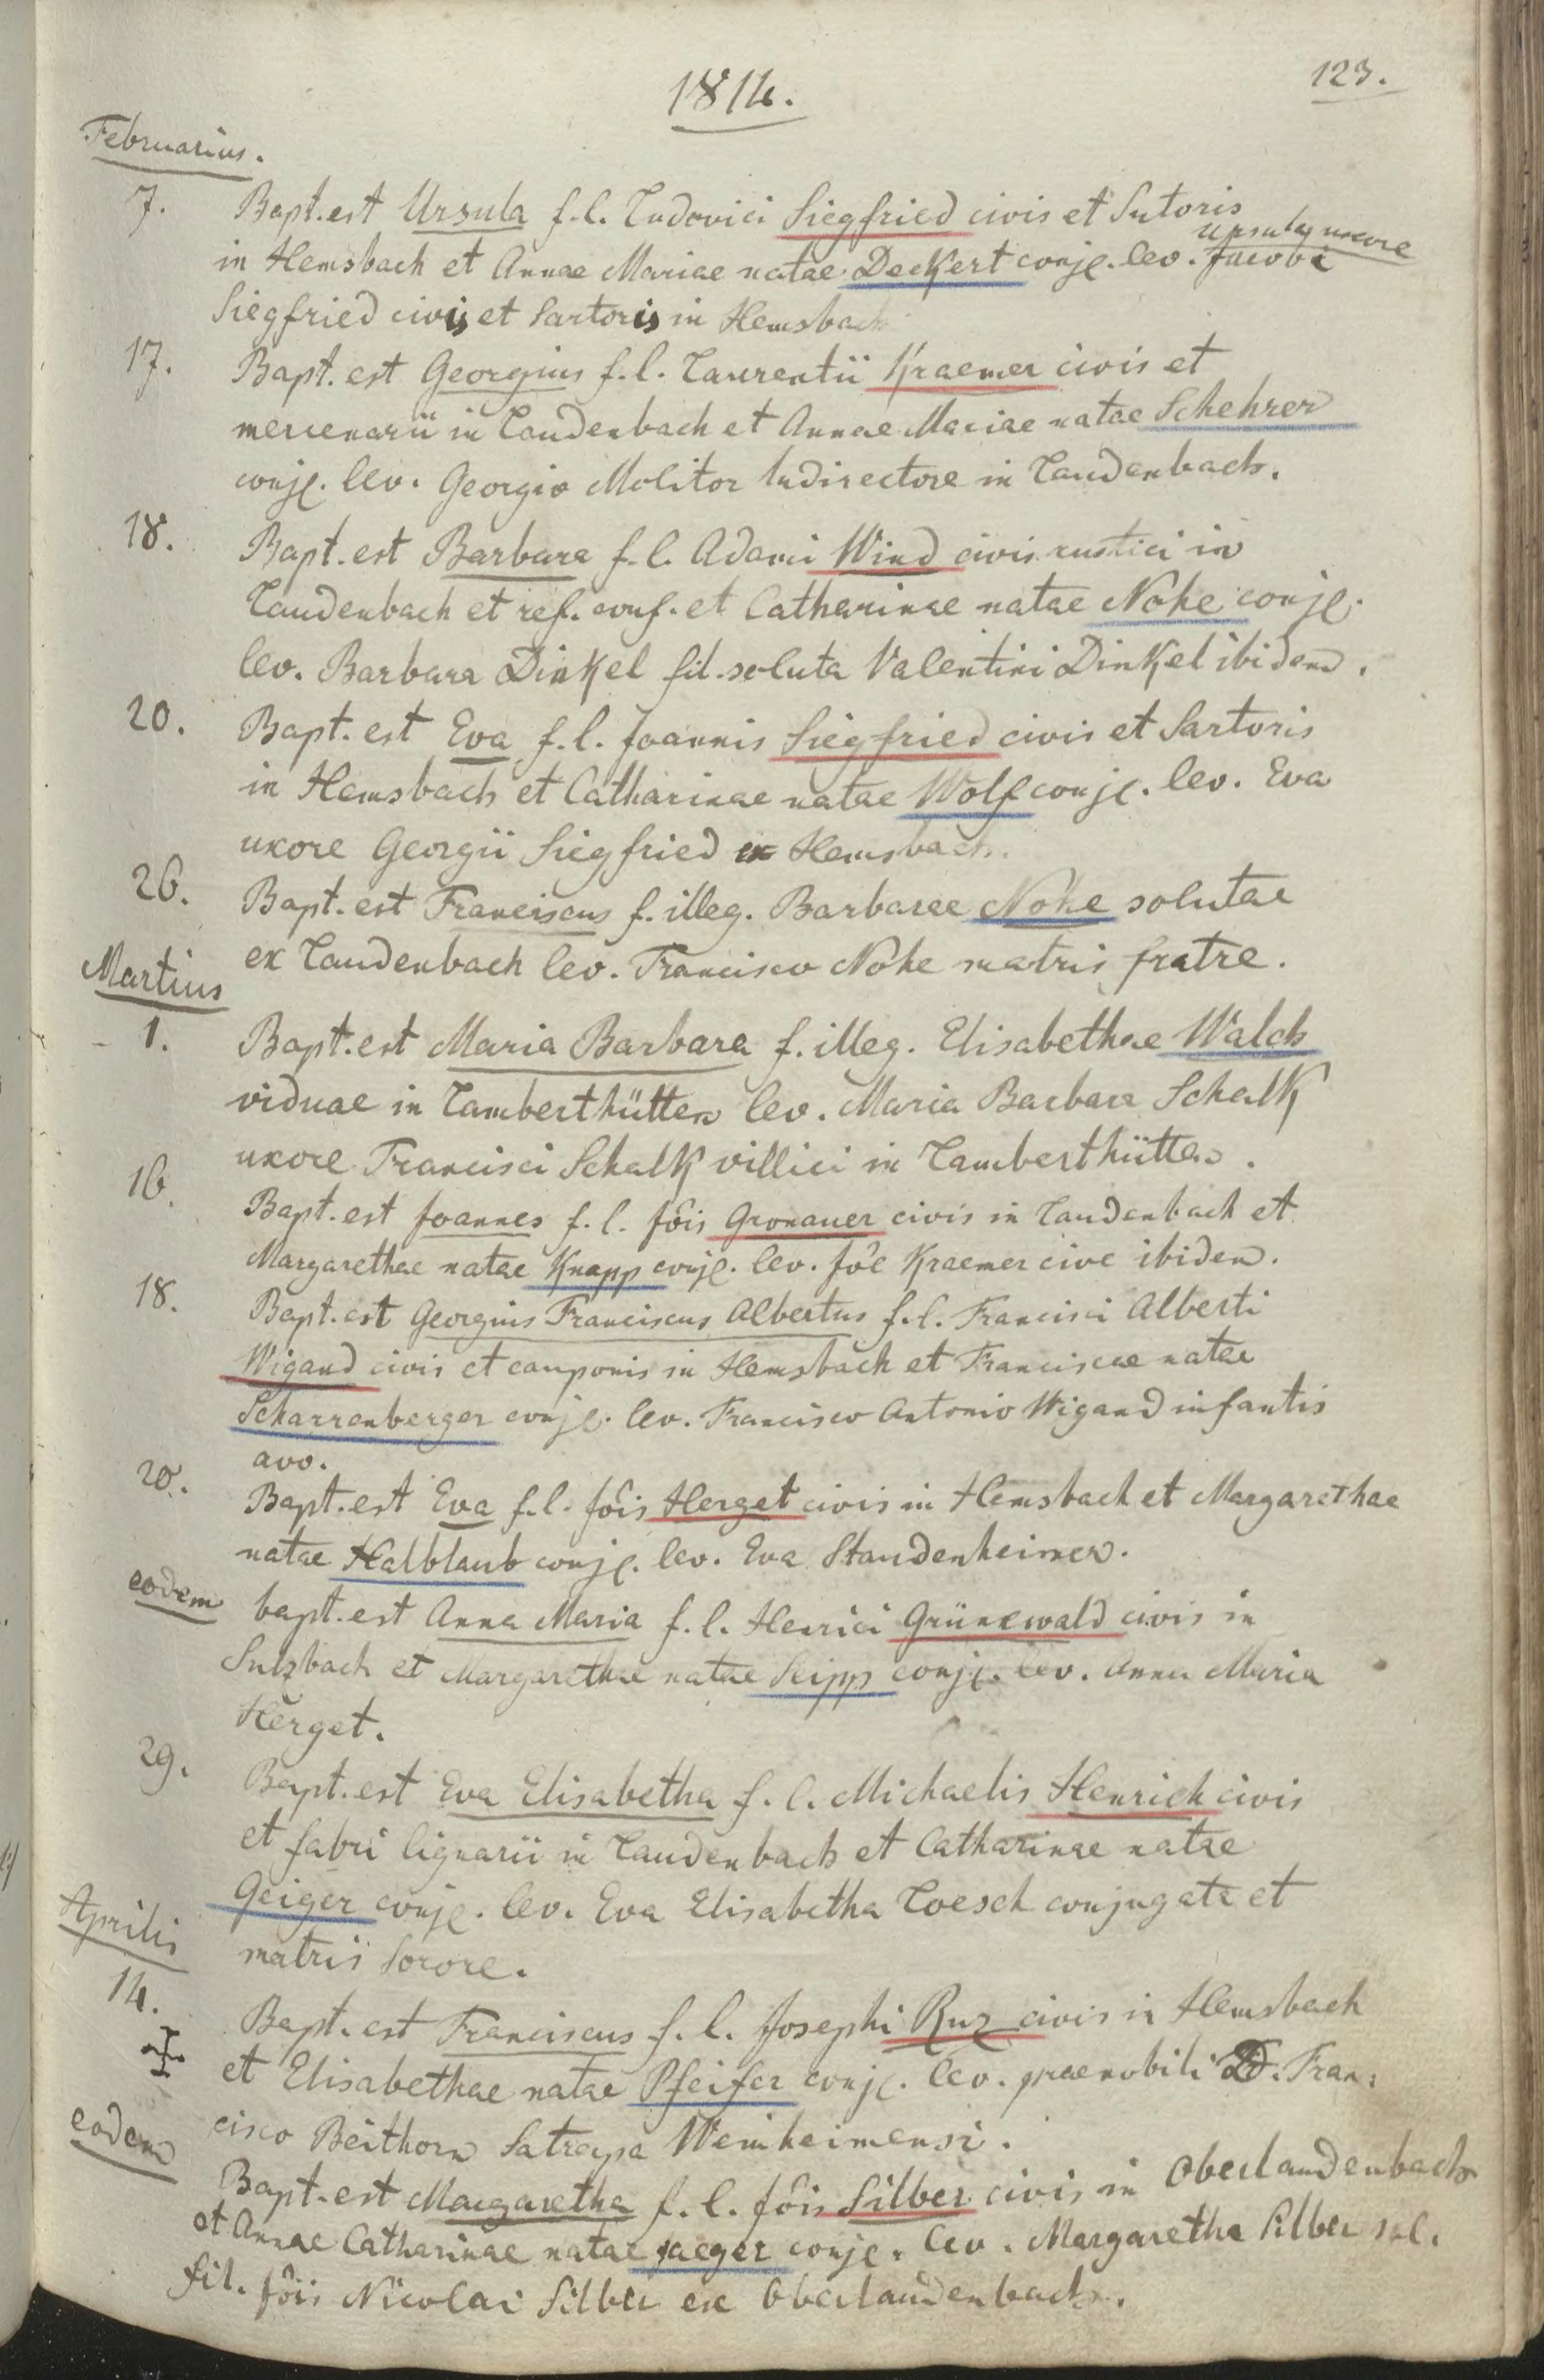 1814.
123.
Februarius.
7. Bapt. est Ursula f. l. Ludovici Siegfried civis et Sutoris
Ursula uxore
in Hemsbach et Annae Mariae natae Deckert conjg. lev. Jacobi
Siegfried civis et Sartoris in Hemsbach
17. Bapt. est Georgius f. l. Laurentii Kraemer civis et
mercenarii in Laudenbach et Annae Mariae natae Schehrer
conjg. lev. Georgio Molitor ludirectore in Laudenbach.
18. Bapt. est Barbara f. l. Adami Wind civis rustici in
Laudenbach et ref. conf. et Catharinae natae Nohe conjg.
lev. Barbara Dinkel fil. soluta Valentini Dinkel ibidem.
20. Bapt. est Eva f. l. Joannis Siegfried civis et Sartoris
in Hemsbach et Catharinae natae Wolf conjg. lev. Eva
uxore Georgii Siegfried ex Hemsbach.
26. Bapt. est Franciscus f. illeg. Barbarae Nohe solutae
ex Laudenbach lev. Francisco Nohe matris fratre.
Martius
1. Bapt. est Maria Barbara f. illeg. Elisabethae Walch
viduae in Lamberthütten lev. Maria Barbara Schalk
uxore Francisci Schalk villici in Lamberthütten.
16. Bapt. est Joannes f. l. Jôis Gronauer civis in Laudenbach et
Margarethae natae Knapp conjg. lev. Jôe Kraemer cive ibidem.
18. Bapt. est Georgius Franciscus Albertus f. l. Francisci Alberti
Wigand civis et cauponis in Hemsbach et Franciscae natae
Scharrenberger conjg. lev. Francisco Antonio Wigand infantis
avo.
20. Bapt. est Eva f. l. Jôis Herget civis in Hemsbach et Margarethae
natae Halblaub conjg. lev. Eva Staudenheimer.
eodem bapt. est Anna Maria f. l. Henrici Grünewald civis in
Sulzbach et Margarethae natae Seipp conjg. lev. Anna Maria
Herget.
29. Bapt. est Eva Elisabetha f. l. Michaelis Henrich civis
et fabri lignarii in Laudenbach et Catharinae natae
Geiger conjg. lev. Eva Elisabetha Loesch conjugata et
matris Sorore.
Aprilis
14. Bapt. est Franciscus f. l. Josephi Ruz civis in Hemsbach
et Elisabethae natae Pfeifer conjg. lev. praenobili D. Fran:
cisco Beithorn Satrapa Weinheimensi.
eodem Bapt. est Margaretha f. l. Jôis Silber civis in Oberlaudenbach
et Annae Catharinae natae Jaeger conjg. lev. Margaretha Silber sol.
fil. Jôis Nicolai Silber ex Oberlaudenbach.